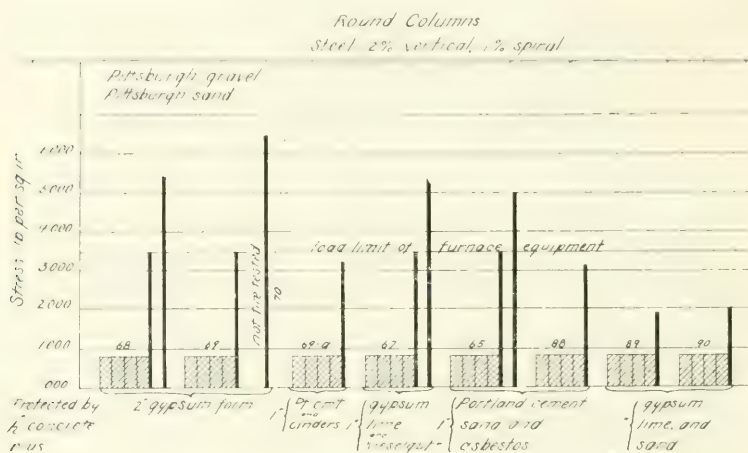 Round Columns
Steel 2% vertical, 1% spiral
Pittsburgh gravel
Pittsburgh sand
Stress lb per sq in
6000
5000
4000
3000
2000
1000
000
load limit of furnace equipment
not fire tested
70
68
69
69-a
62
65
88
89
90
Protected by
concrete
plus
2" gypsum form
1" Pt cmt
and
cinders
1" gypsum
lime
and
1" Portland cement
sand and
asbestos
gypsum
lime, and
sand